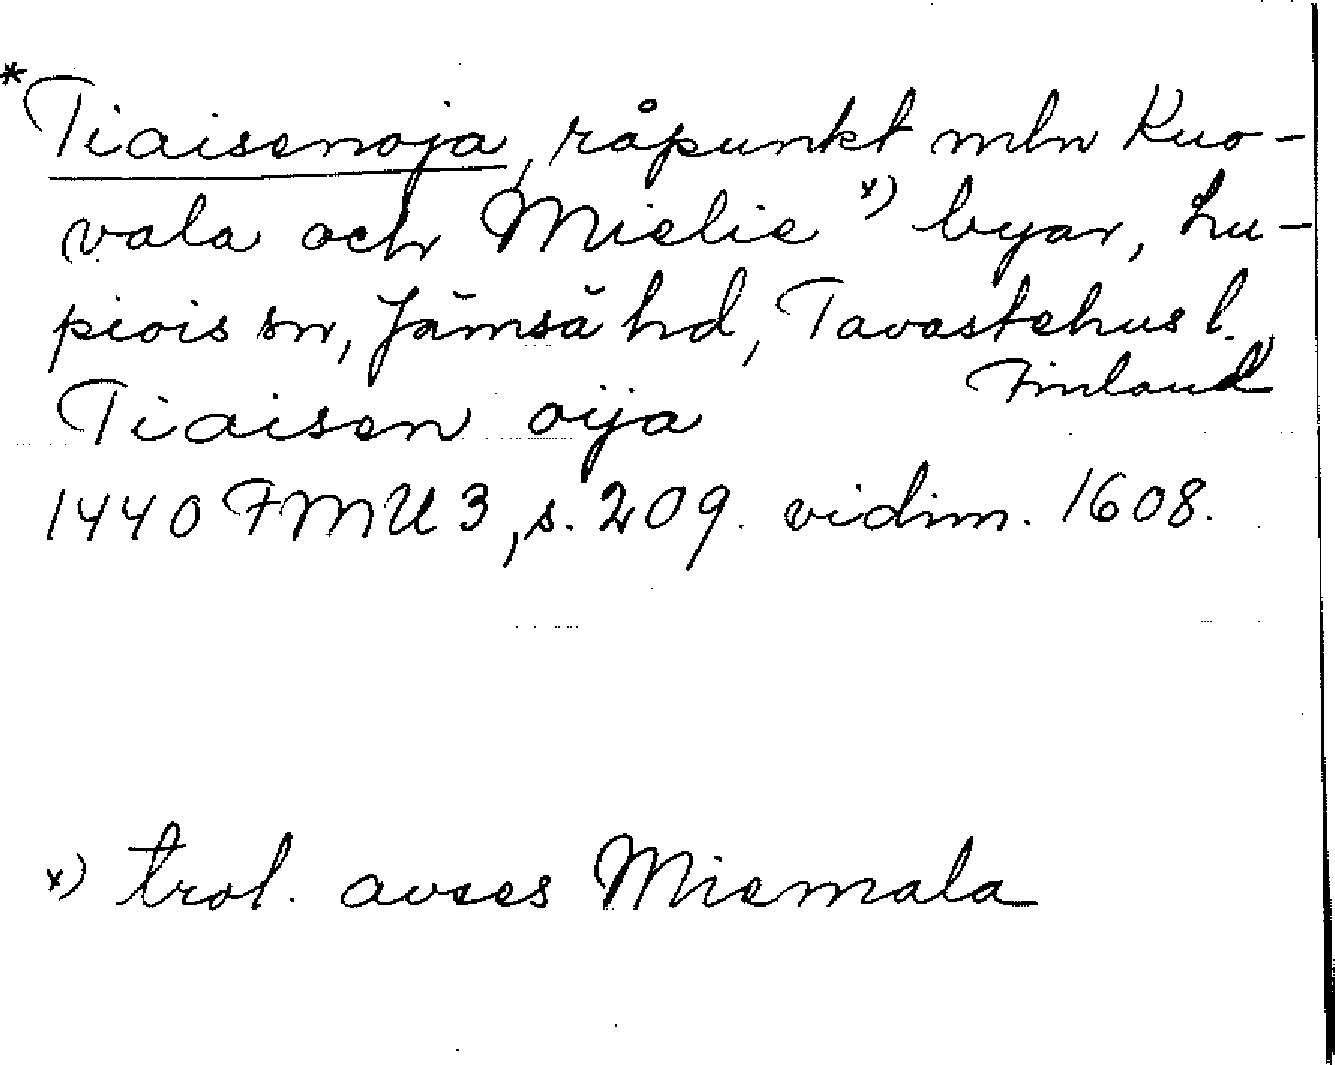 *Tiaisenoja, råpunkt mln Kuo-
vala och Mielie x) byar, Lu-
piois sn, Jämsä hd, Tavastehus l.,
Finland
Tiaisen oija
1440 FMU 3, s. 209. vidim. 1608.
x) trol. avses Miemala